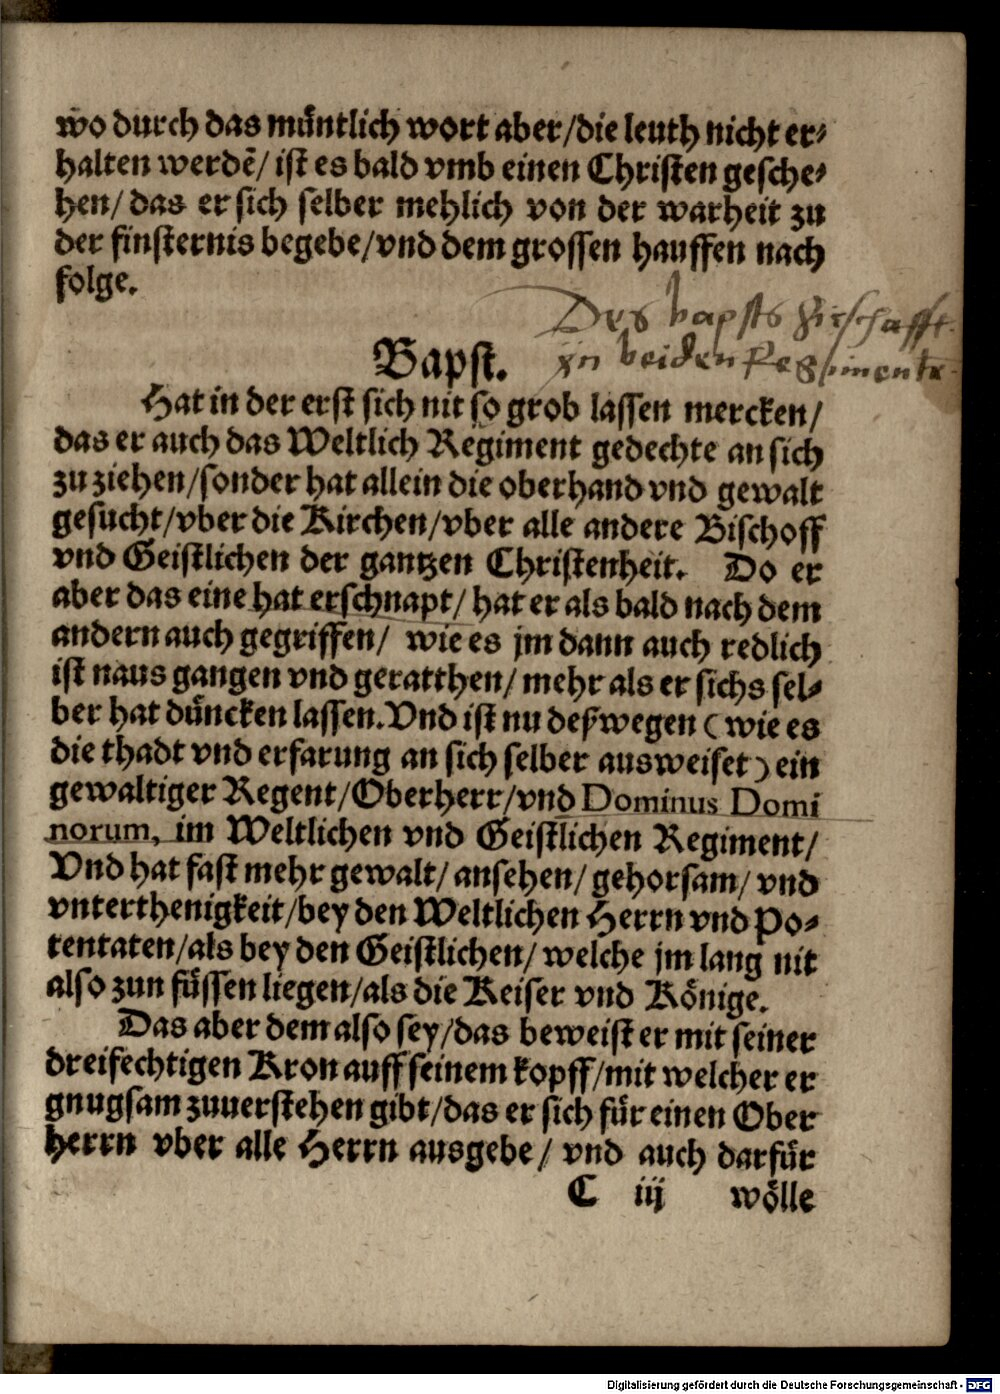 wo durch das můntlich wort aber/die leuth nicht er⸗
halten werdē/ ist es bald vmb einen Christen gesche⸗
hen/ das er sich selber mehlich von der warheit zu
der finsternis begebe/vnd dem grossen hauffen nach
folge.
Des bapsts hirschafft
jn beiden Regimentē
Bapst.
Hat in der erst sich nit so grob lassen mercken/
das er auch das Weltlich Regiment gedechte an sich
zu ziehen/sonder hat allein die oberhand vnd gewalt
gesucht/vber die Kirchen/vber alle andere Bischoff
vnd Geistlichen der gantzen Christenheit. Do er
aber das eine hat erschnapt/ hat er als bald nach dem
andern auch gegriffen/ wie es jm dann auch redlich
ist naus gangen vnd geratthen/ mehr als er sichs sel⸗
ber hat důncken lassen. Vnd ist nu deßwegen (wie es
die thadt vnd erfarung an sich selber ausweiset) ein
gewaltiger Regent/Oberherr/vnd Dominus Domi
norum, im Weltlichen vnd Geistlichen Regiment/
Vnd hat fast mehr gewalt/ ansehen/ gehorsam/ vnd
vnterthenigkeit/bey den Weltlichen Herrn vnd Po⸗
tentaten/als bey den Geistlichen/ welche jm lang nit
also zun fůssen liegen/als die Keiser vnd Kőnige.
Das aber dem also sey/das beweist er mit seiner
dreifechtigen Kron auff seinem kopff/mit welcher er
gnugsam zuuerstehen gibt/das er sich fůr einen Ober
herrn vber alle Herrn ausgebe/ vnd auch darfůr
C iij wőlle
Digitalisierung gefördert durch die Deutsche Forschungsgemeinschaft - DFG